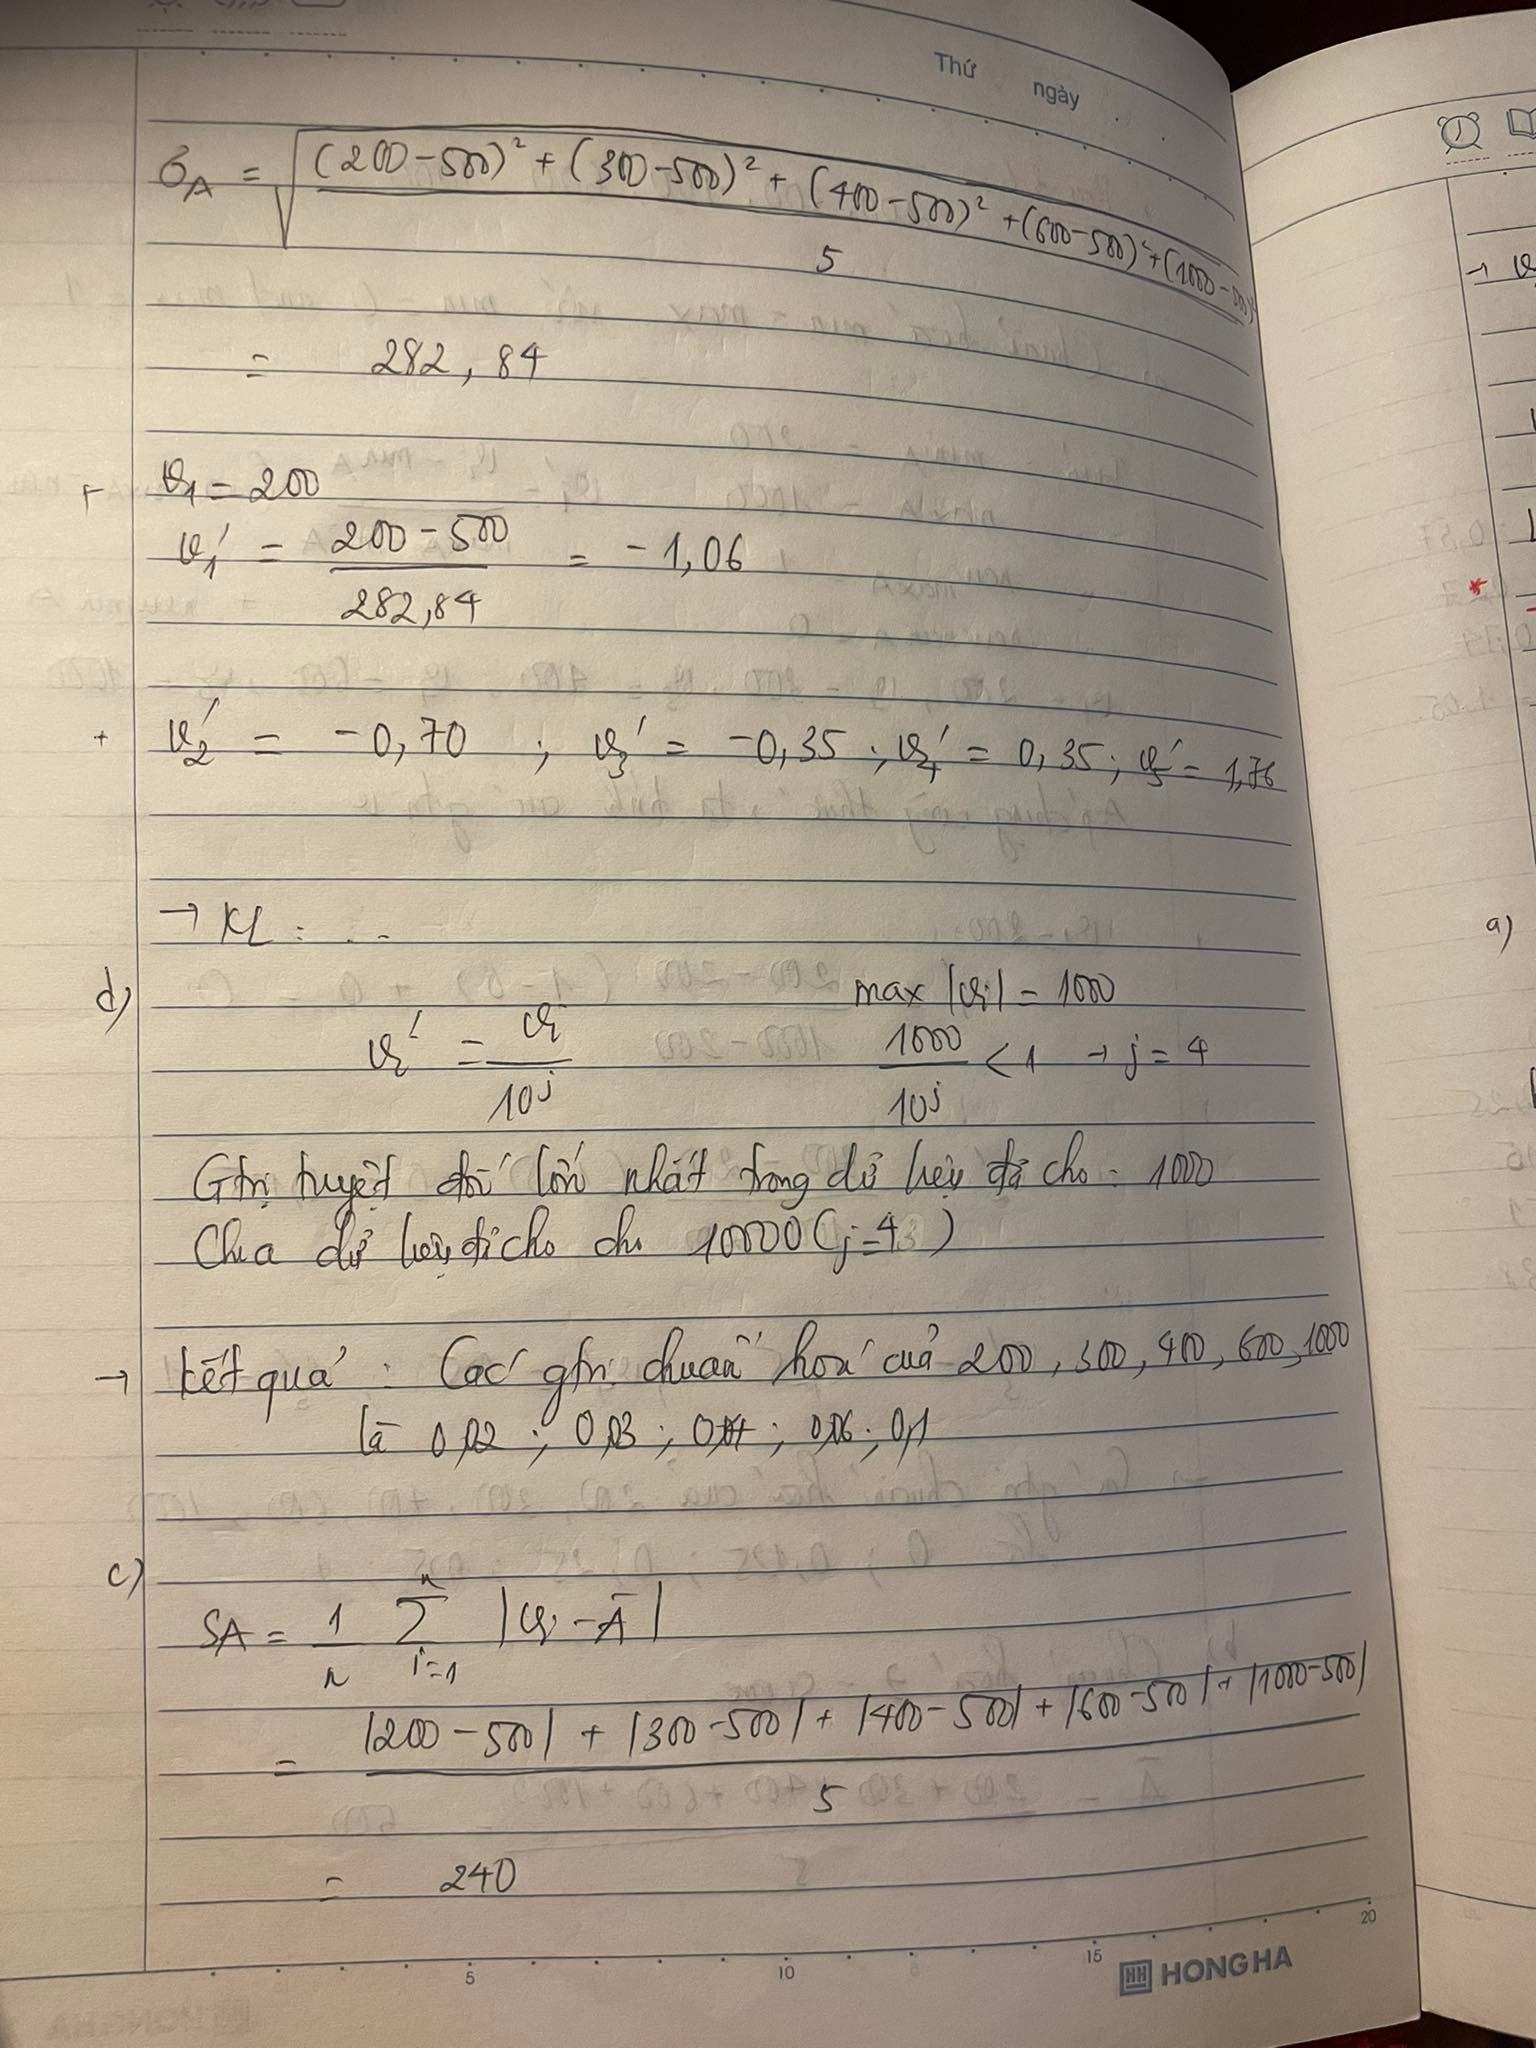 Thứ ngày
σA = √((200-500)² + (300-500)² + (400-500)² + (600-500)² + (1000-500)² / 5)
= 282,84
+ v1 = 200
v1' = (200-500) / 282,84 = -1,06
+ v2' = -0,70 ; v3' = -0,35 ; v4' = 0,35 ; v5' = 1,76
→ KL : ...
d) max |vi| = 1000
vi' = vi / 10^j 1000 / 10^j < 1 → j = 4
Gtrị tuyệt đối lớn nhất trong dữ liệu đã cho : 1000
Chia dữ liệu đã cho cho 10000 (j=4)
→ kết quả : Các gtrị chuẩn hoá của 200, 300, 400, 600, 1000
là 0,02 ; 0,03 ; 0,04 ; 0,06 ; 0,1
c)
SA = 1/n Σ i=1 n |vi - Ā|
= (|200-500| + |300-500| + |400-500| + |600-500| + |1000-500|) / 5
= 240
5 10 15 20
HH HONG HA
a)